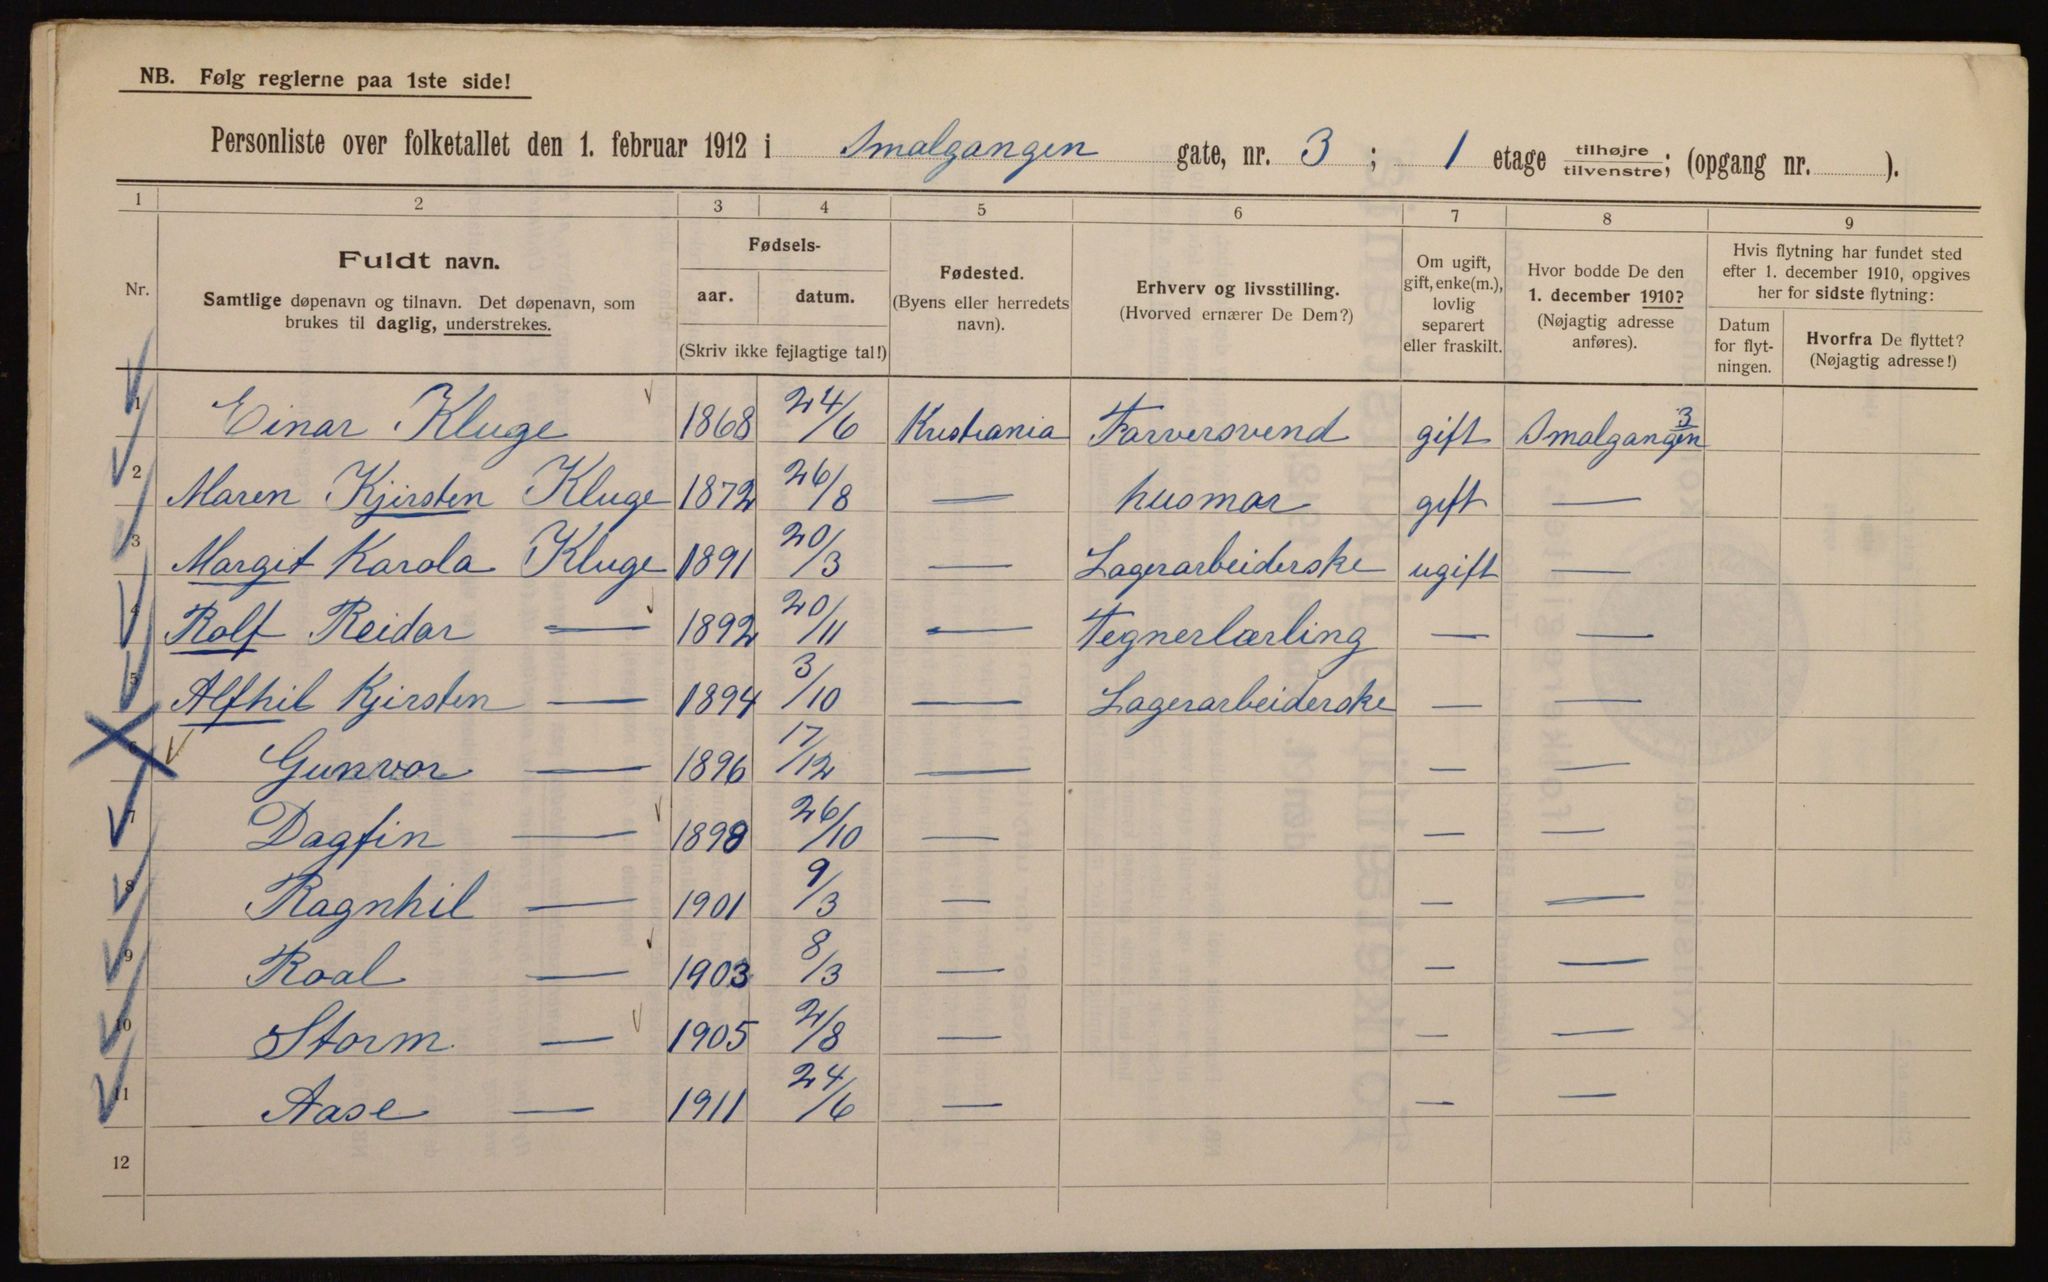 NB. Følg reglerne paa 1ste side!
Personliste over folketallet den 1. februar 1912 i Smalgangen gate, nr. 3 ; 1 etage tilhøjre/tilvenstre; (opgang nr. ).
1 2 3 4 5 6 7 8 9
Nr.
Fuldt navn.
Samtlige døpenavn og tilnavn. Det døpenavn, som
brukes til daglig, understrekes.
Fødsels-
aar. datum.
(Skriv ikke fejlagtige tal!)
Fødested.
(Byens eller herredets
navn).
Erhverv og livsstilling.
(Hvorved ernærer De Dem?)
Om ugift,
gift, enke(m.),
lovlig
separert
eller fraskilt.
Hvor bodde De den
1. december 1910?
(Nøjagtig adresse
anføres).
Hvis flytning har fundet sted
efter 1. december 1910, opgives
her for sidste flytning:
Datum
for flyt-
ningen.
Hvorfra De flyttet?
(Nøjagtig adresse!)
1 Einar Kluge 1868 24/6 Kristiania Farversvend gift Smalgangen 3
2 Maren Kjirsten Kluge 1872 26/8 — husmor gift —
3 Margit Karola Kluge 1891 20/3 — Lagerarbeiderske ugift —
4 Rolf Reidar — 1892 20/11 — Tegnerlærling — —
5 Alfhil Kjirsten — 1894 3/10 — Lagerarbeiderske — —
6 Gunvor — 1896 17/12 — — —
7 Dagfin — 1898 26/10 — — —
8 Ragnhil — 1901 9/3 — — —
9 Roal — 1903 8/3 — — —
10 Storm — 1905 2/8 — — —
11 Aase — 1911 24/6 — — —
12